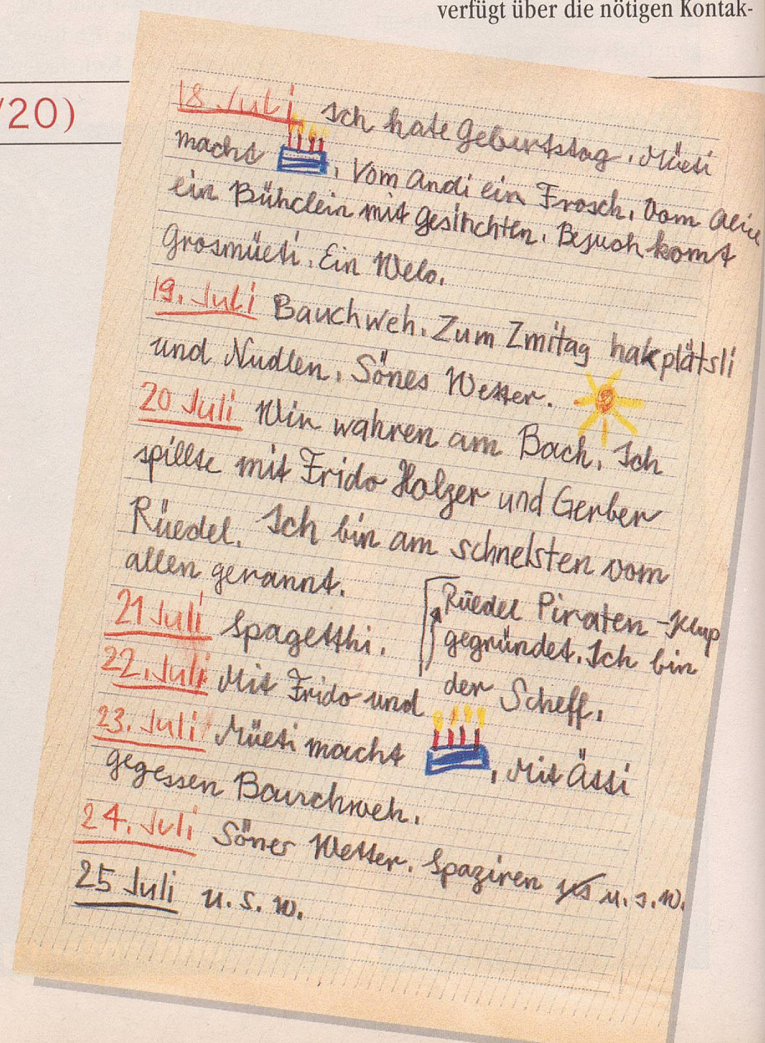 verfügt über die nötigen Kontak-
/20)
18 Juli Ich hate Geburtstag. Müeti
macht . Vom Andi ein Frosch. Vom Alice
ein Bühclein mit Gesihchten. Besuch komt
Grosmüeti. Ein Welo.
19. Juli Bauchweh. Zum Zmitag hakplätsli
und Nudlen. Sönes Wetter.
20 Juli Wir wahren am Bach. Ich
spillte mit Frido Holzer und Gerber
Rüedel. Ich bin am schnelsten vom
allen gerannt.
21 Juli Spagetthi.
22. Juli Mit Frido und
Rüedel Piraten-Klup
gegründet. Ich bin
der Scheff.
23. Juli Müeti macht . Mit Ätti
gegessen Baurchweh.
24. Juli Söner Wetter. Spaziren u.s.w.
25 Juli u.s.w.